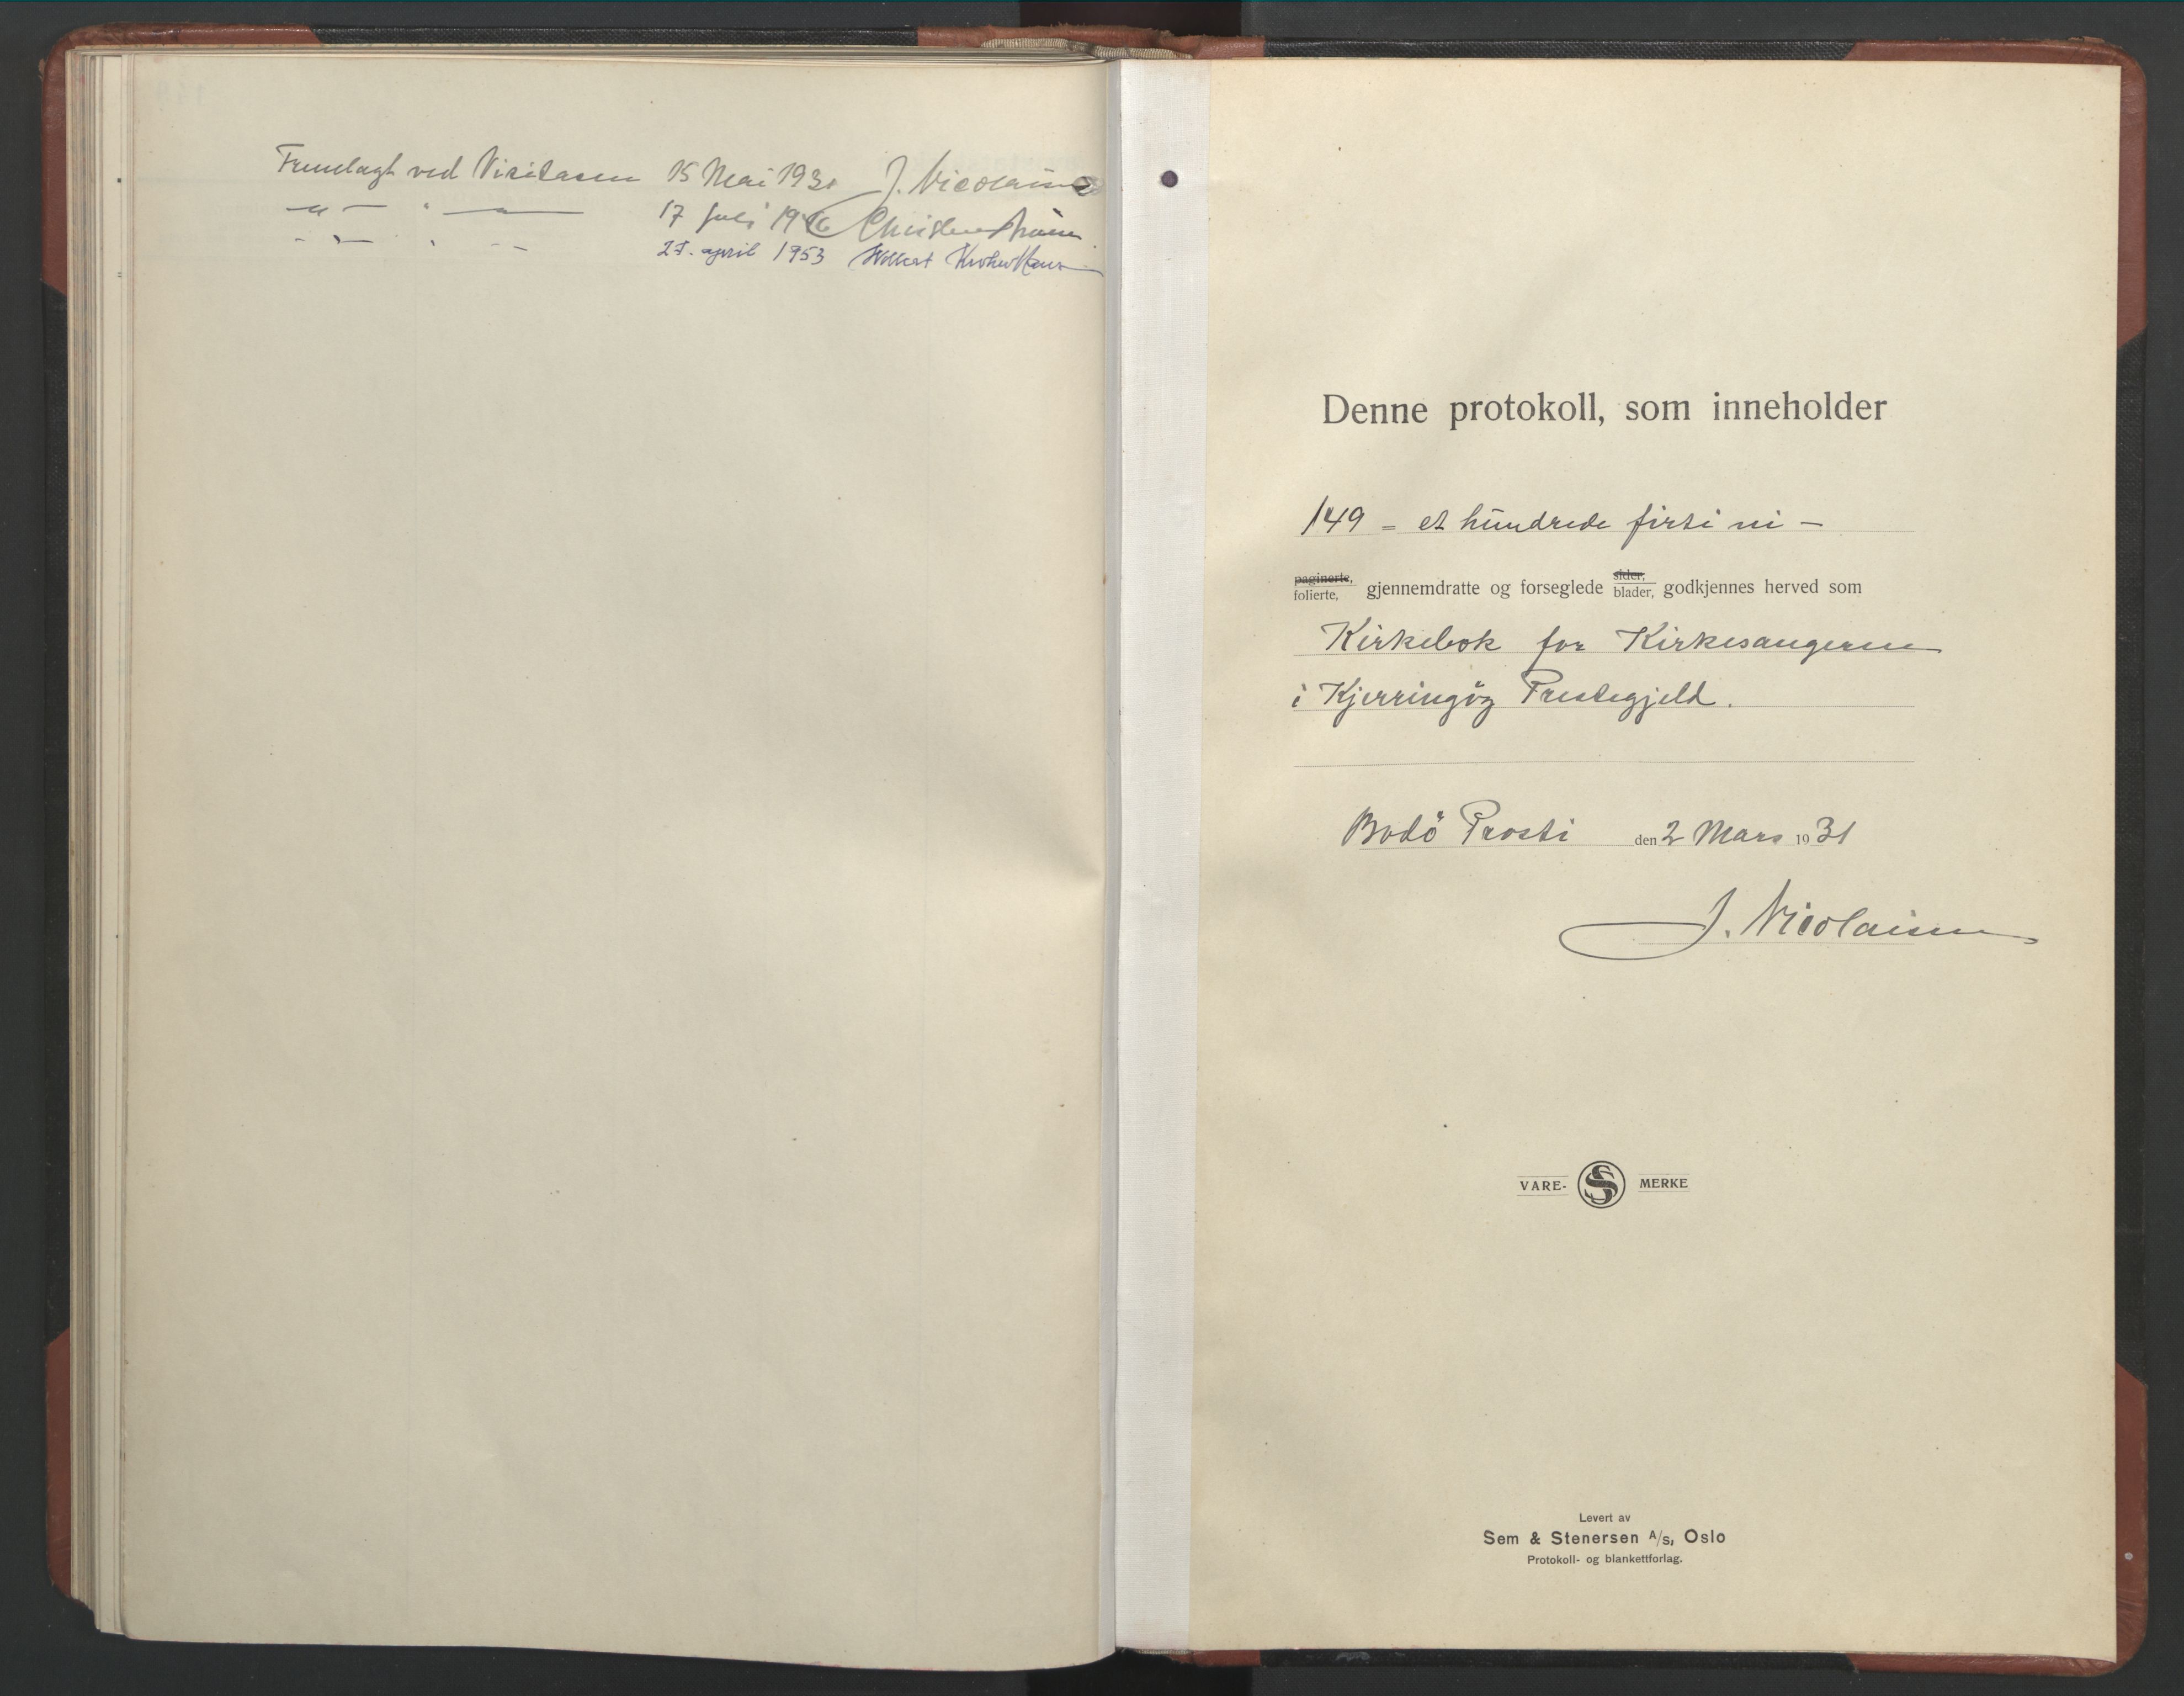 Fremlagt ved Visitasen 15 Mai 1931 J. Nicolaisen
— " — " — " — 17 juli 19
27. april 1953 Wollert Krohn Hans
Denne protokoll, som inneholder
149 = et hundrede firti ni —
paginerte, folierte, gjennemdratte og forseglede sider, blader, godkjennes herved som
Kirkebok for Kirkesangeren
i Kjerringöy Prestegjeld.
Bodö Prosti den 2 Mars 1931
J. Nicolaisen
VARE- S MERKE
Levert av
Sem & Stenersen A/S, Oslo
Protokoll- og blankettforlag.